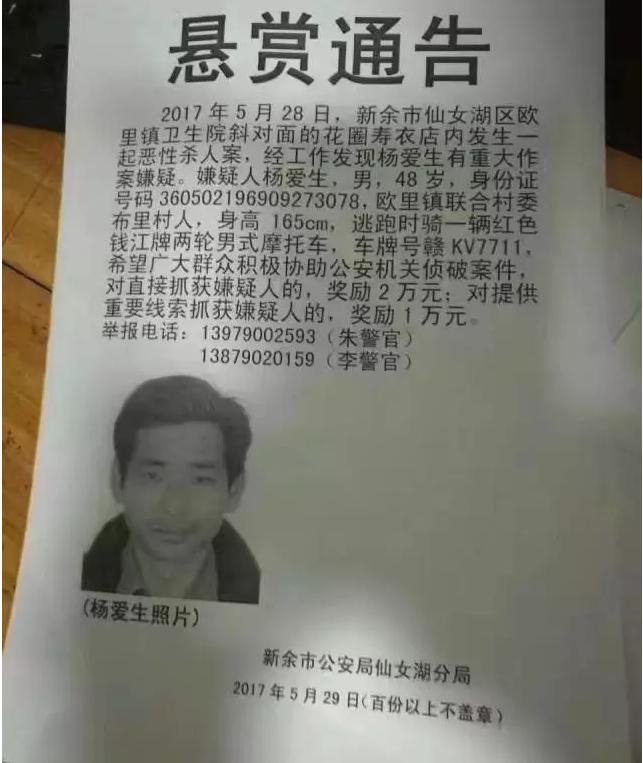 悬赏通告
2017年5月28日，新余市仙女湖区欧
里镇卫生院斜对面的花圈寿衣店内发生一
起恶性杀人案，经工作发现杨爱生有重大作
案嫌疑。嫌疑人杨爱生，男，48岁，身份证
号码360502196909273078，欧里镇联合村委
布里村人，身高165cm，逃跑时骑一辆红色
钱江牌两轮男式摩托车，车牌号赣KV7711，
希望广大群众积极协助公安机关侦破案件，
对直接抓获嫌疑人的，奖励2万元；对提供
重要线索抓获嫌疑人的，奖励1万元。
举报电话：13979002593（朱警官）
13879020159（李警官）
(杨爱生照片)
新余市公安局仙女湖分局
2017年5月29日(百份以上不盖章)